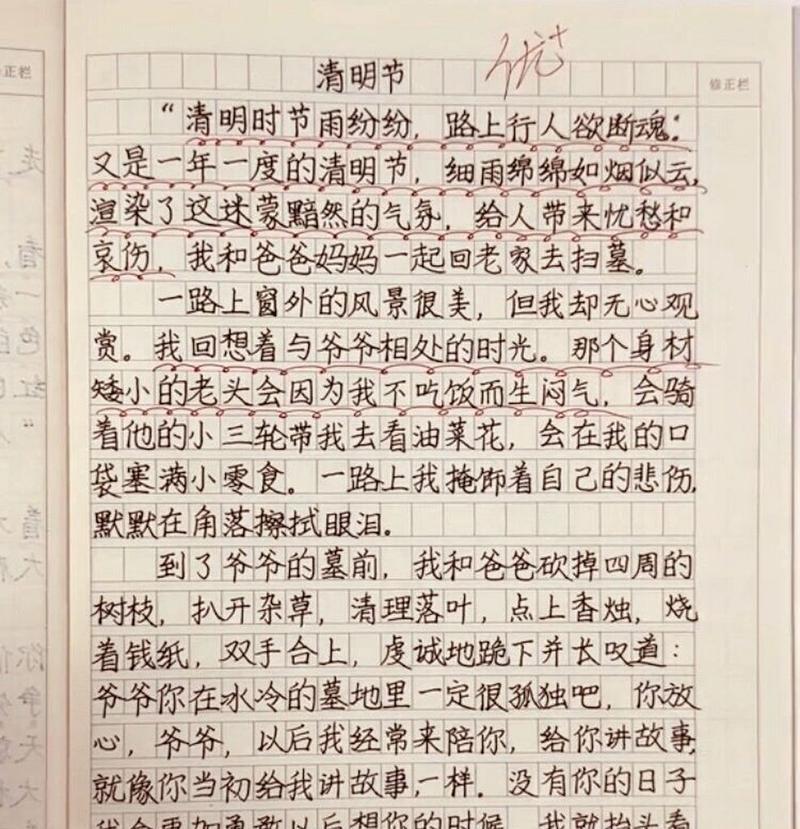 清明节
优+
修正栏
正栏
“清明时节雨纷纷，路上行人欲断魂：
又是一年一度的清明节，细雨绵绵如烟似云，
渲染了这迷蒙黯然的气氛，给人带来忧愁和
哀伤，我和爸爸妈妈一起回老家去扫墓。
一路上窗外的风景很美，但我却无心观
赏。我回想着与爷爷相处的时光。那个身材
矮小的老头会因为我不吃饭而生闷气，会骑
着他的小三轮带我去看油菜花，会在我的口
袋塞满小零食。一路上我掩饰着自己的悲伤，
默默在角落擦拭眼泪。
到了爷爷的墓前，我和爸爸砍掉四周的
树枝，扒开杂草，清理落叶，点上香烛，烧
着钱纸，双手合上，虔诚地跪下并长叹道：
爷爷你在冰冷的墓地里一定很孤独吧，你放
心，爷爷，以后我经常来陪你，给你讲故事，
就像你当初给我讲故事，一样。没有你的日子
我会更加勇敢以后想你的时候，我就抬头看